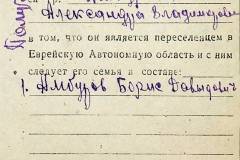 Александра Владимиров
в том, что он является переселенцем в
Еврейскую Автономную область и с ним
следует его семья в составе:
1. Амбуров Борис Давыдович